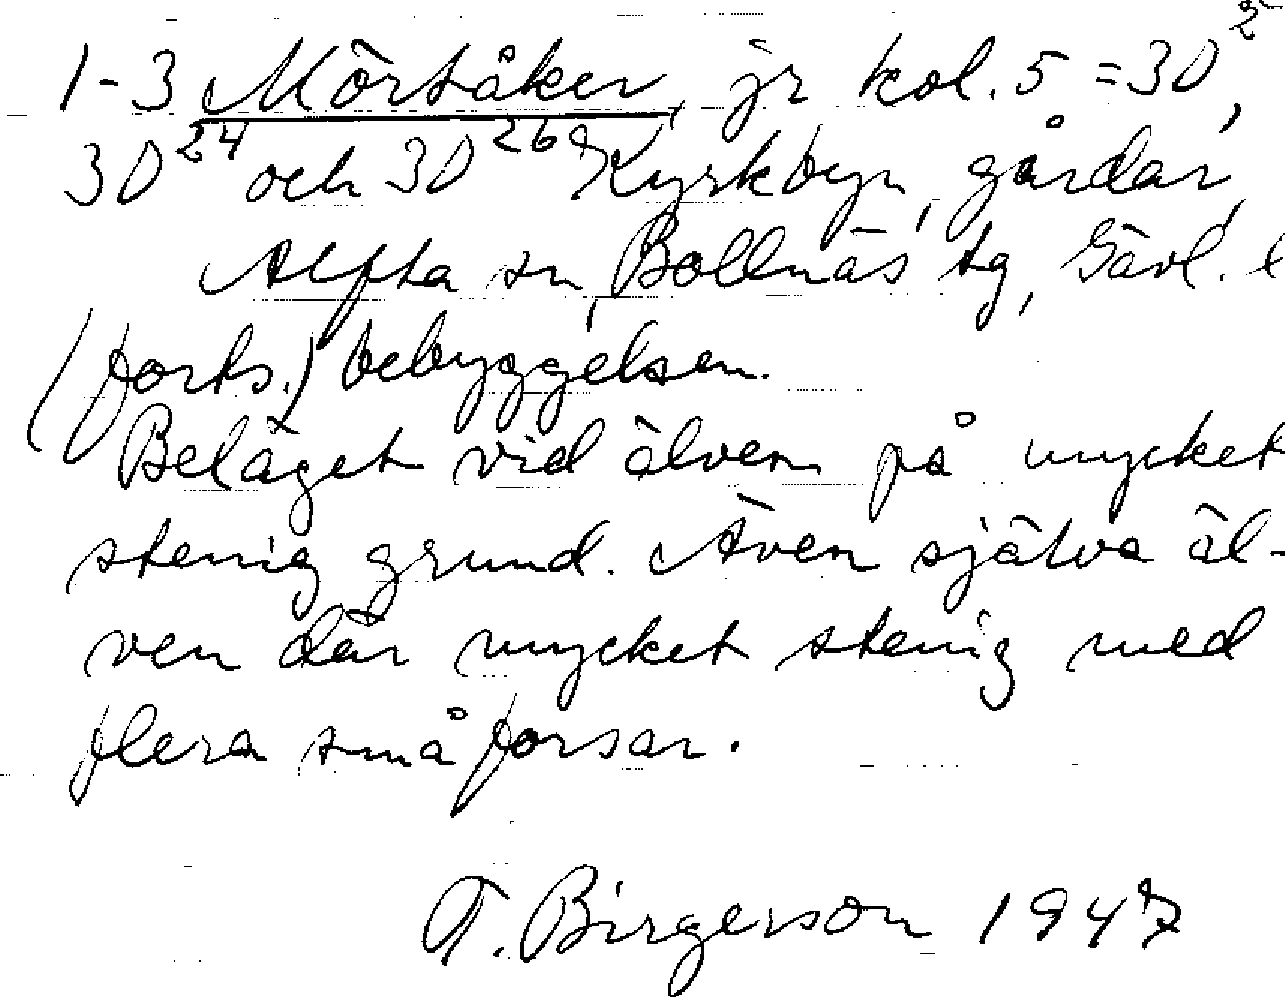 1-3 Mörtåker, jr kol. 5 = 30²,
30²⁴ och 30²⁶ Kyrkbyn, gårdar,
Alfta sn, Bollnäs tg, Gävl. l
(forts.) bebyggelsen.
Beläget vid älven på mycket
stenig grund. Även själva äl-
ven där mycket stenig med
flera små forsar.
T. Birgerson 1947